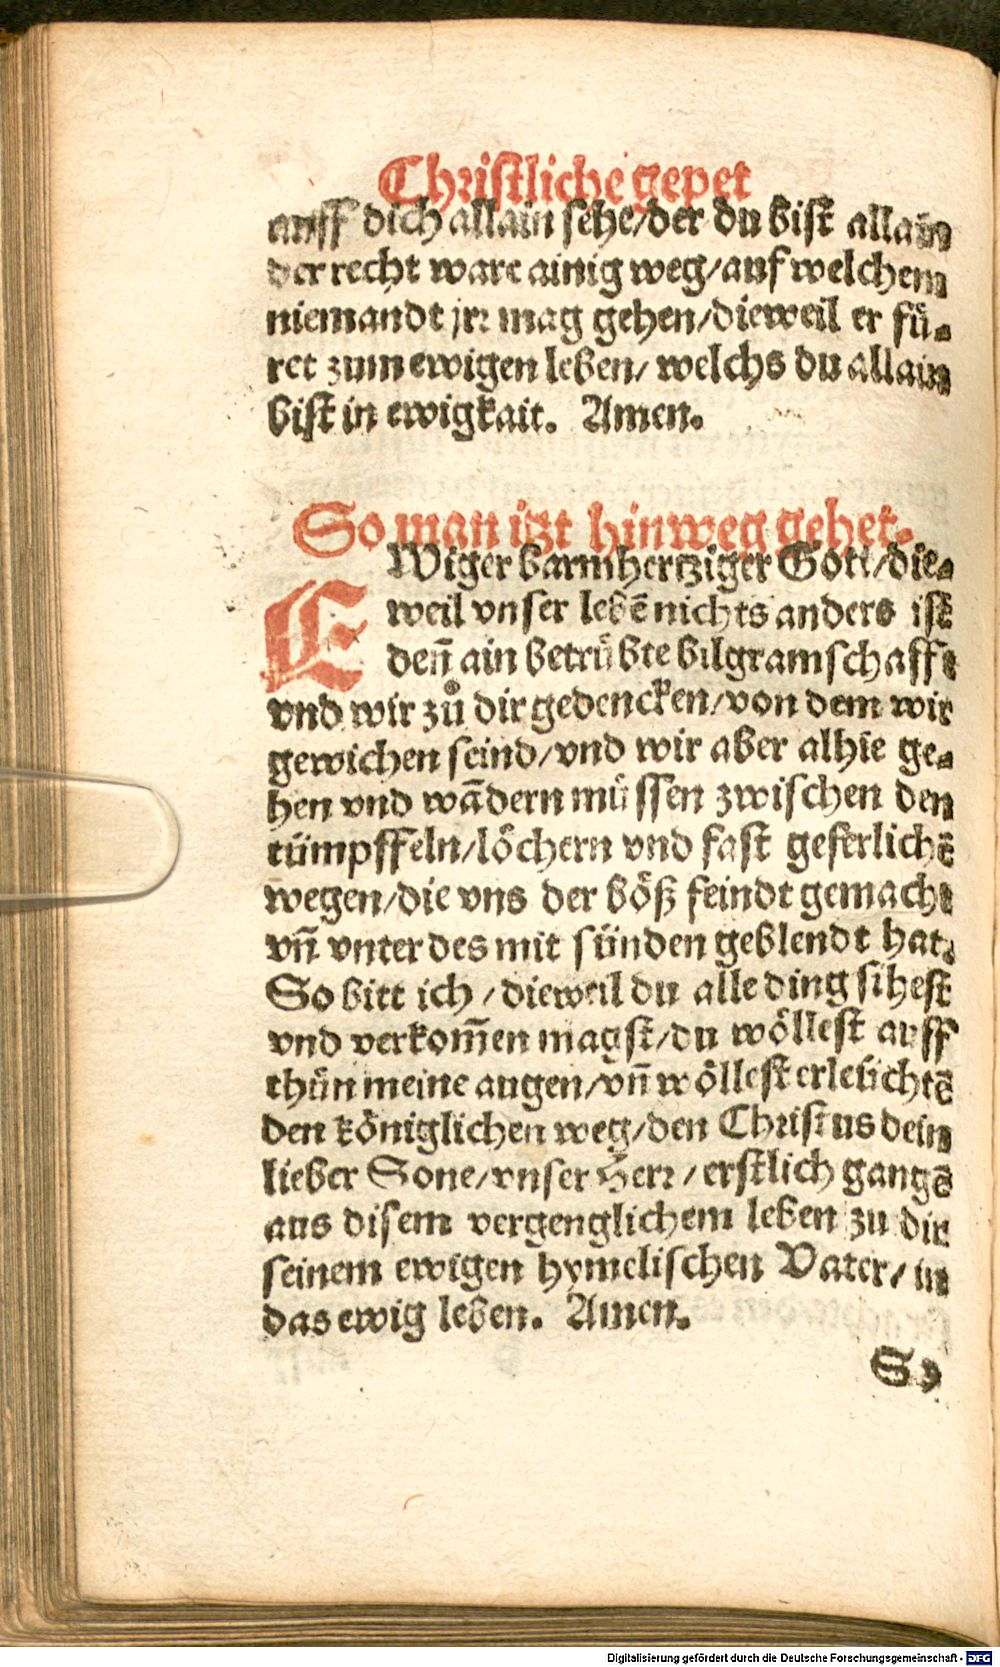 Christliche gepet
auff dich allain sehe/der du bist allain
der recht ware ainig weg/auf welchem
niemandt jrr mag gehen/dieweil er fü-
ret zum ewigen leben/ welchs du allain
bist in ewigkait. Amen.
So man itzt hinweg gehet.
EWiger barmhertziger Gott/die-
weil vnser lebē nichts anders ist
deñ ain betrübte bilgramschafft
vnd wir zů dir gedencken/von dem wir
gewichen seind/vnd wir aber alhie ge-
hen vnd wādern müssen zwischen den
tümpffeln/löchern vnd fast geferlichē
wegen/die vns der böß feindt gemacht
vñ vnter des mit sünden geblendt hat.
So bitt ich / dieweil du alle ding sihest
vnd verkom̃en magst/du wöllest auff
thün meine augen/vñ wöllest erleüchtē
den königlichen weg/den Christus dein
lieber Sone/vnser Herr / erstlich gangē
aus disem vergenglichem leben zu dir
seinem ewigen hymelischen Vater/ in
das ewig leben. Amen.
So
Digitalisierung gefördert durch die Deutsche Forschungsgemeinschaft - DFG